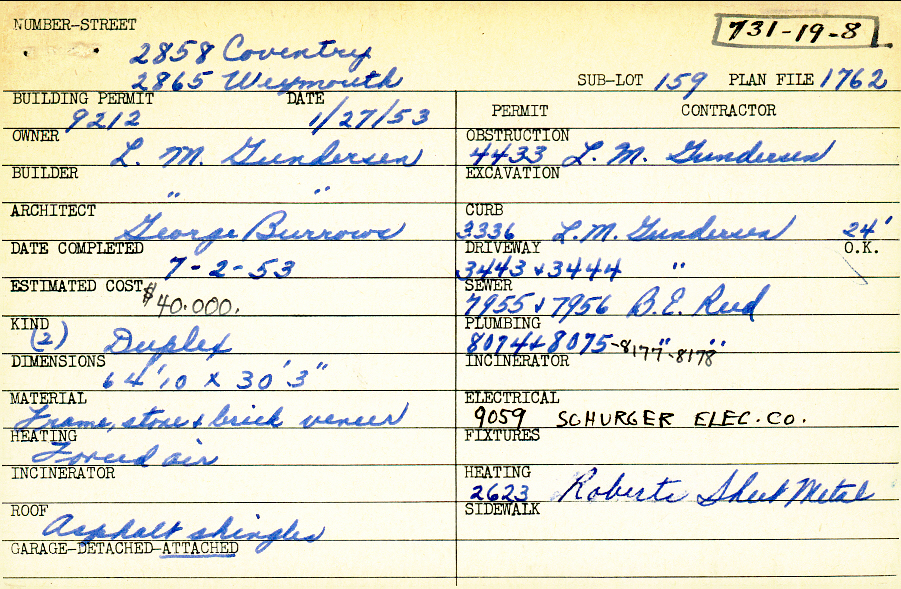 NUMBER-STREET
731-19-8
2858 Coventry
2865 Weymouth
SUB-LOT 159 PLAN FILE 1762
BUILDING PERMIT DATE
9212 1/27/53
PERMIT CONTRACTOR
OWNER
L. M. Gundersen
OBSTRUCTION
4433 L. M. Gundersen
BUILDER
" "
EXCAVATION
ARCHITECT
George Burrows
CURB
3336 L.M. Gundersen 24'
DATE COMPLETED
7-2-53
DRIVEWAY O.K.
3443 + 3444 "
ESTIMATED COST $40.000.
SEWER
7955 + 7956 B.E. Reed
KIND
(2) Duplex
PLUMBING
8074 + 8075-8177-8178 " "
DIMENSIONS
64'10 X 30'3"
INCINERATOR
MATERIAL
Frame, stone + brick veneer
ELECTRICAL
9059 SCHURGER ELEC. CO.
HEATING
Forced air
FIXTURES
INCINERATOR
HEATING
2623 Roberts Sheet Metal
ROOF
Asphalt shingles
SIDEWALK
GARAGE-DETACHED-ATTACHED